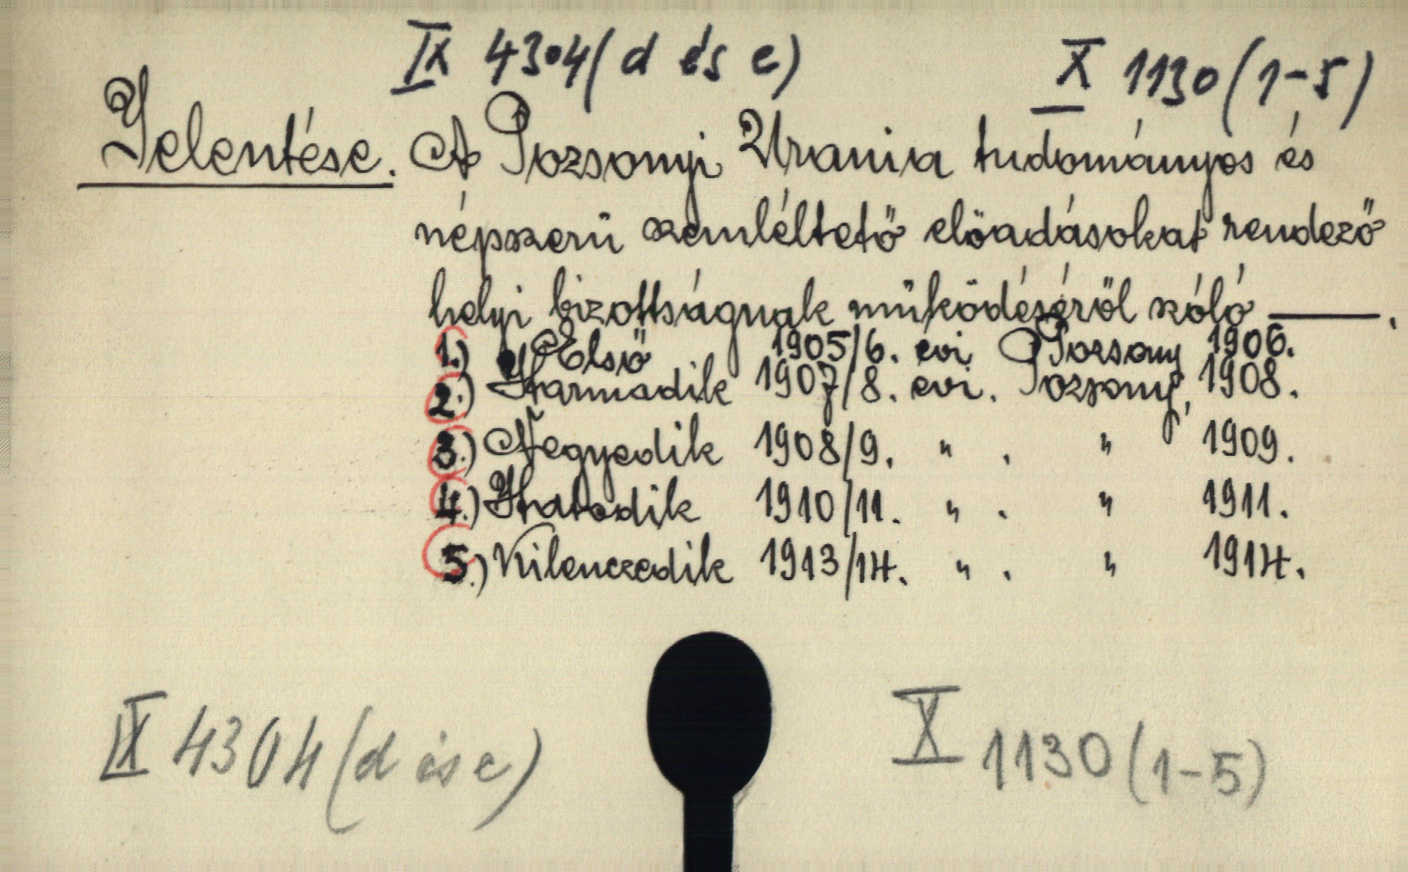 IX 4304 (d és e) X 1130 (1-5)
Jelentése. A Pozsonyi Uránia tudományos és
népszerű szemléltető előadásokat rendező
helyi bizottságnak működéséről szóló ———.
1.) Első 1905/6. évi Pozsony 1906.
2.) Harmadik 1907/8. évi. Pozsony, 1908.
3.) Negyedik 1908/9. " . " 1909.
4.) Hatodik 1910/11. " . " 1911.
5.) Kilenczedik 1913/14. " . " 1914.
IX 4304 (d és e) X 1130 (1-5)